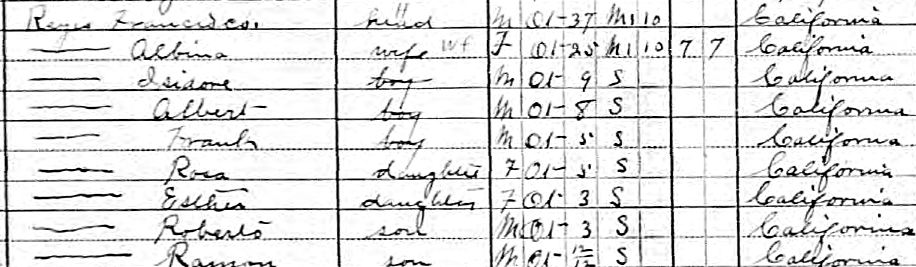 Reyes Francisco head M 01- 37 M1 10 California
Albina wife Wf F 01- 25 M1 10 7 7 California
Isidore boy M 01- 9 S California
Albert boy M 01- 8 S California
Frank boy M 01- 5 S California
Rosa daughter F 01- 5 S California
Esther daughter F 01- 3 S California
Roberto son M 01- 3 S California
Ramon son M 01- S California